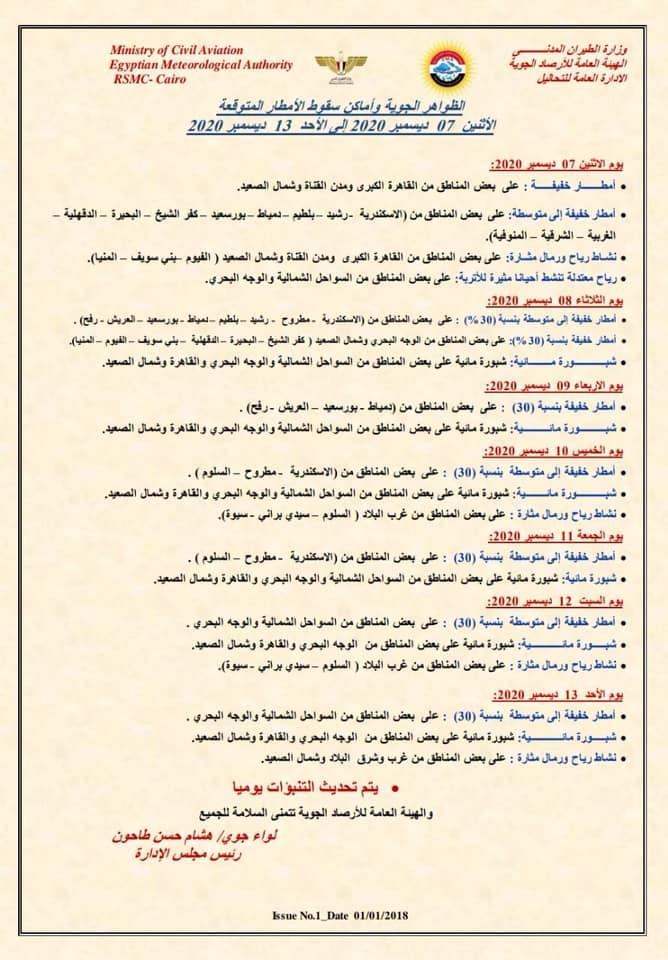 Ministry of Civil Aviation
Egyptian Meteorological Authority
RSMC- Cairo
وزارة الطيران المدنـــــى
الهيئة العامة للأرصاد الجوية
الادارة العامة للتحاليل
الظواهر الجوية وأماكن سقوط الأمطار المتوقعة
الأثنين 07 ديسمبر 2020 إلى الأحد 13 ديسمبر 2020
يوم الاثنين 07 ديسمبر 2020:
• أمطـــــار خفيفـــــة : على بعض المناطق من القاهرة الكبرى ومدن القناة وشمال الصعيد.
• أمطار خفيفة إلى متوسطة: على بعض المناطق من (الاسكندرية -رشيد – بلطيم – دمياط – بورسعيد – كفر الشيخ – البحيرة – الدقهلية –
الغربية – الشرقية – المنوفية).
• نشاط رياح ورمال مثـــارة: على بعض المناطق من القاهرة الكبرى ومدن القناة وشمال الصعيد ( الفيوم –بني سويف – المنيا).
• رياح معتدلة تنشط أحيانا مثيرة للأتربة: على بعض المناطق من السواحل الشمالية والوجه البحري.
يوم الثلاثاء 08 ديسمبر 2020:
• أمطار خفيفة إلى متوسطة بنسبة (30 %) : على بعض المناطق من (الاسكندرية - مطروح - رشيد – بلطيم – دمياط - بورسعيد – العريش - رفح) .
• أمطار خفيفة بنسبة (30 %): على بعض المناطق من الوجه البحري وشمال الصعيد ( كفر الشيخ – البحيرة – الدقهلية – بني سويف – الفيوم – المنيا).
• شبـــــورة مـــــائية: شبورة مائية على بعض المناطق من السواحل الشمالية والوجه البحري والقاهرة وشمال الصعيد.
يوم الاربعاء 09 ديسمبر 2020:
• أمطار خفيفة بنسبة (30) : على بعض المناطق من (دمياط - بورسعيد – العريش - رفح) .
• شبـــورة مائـــــية: شبورة مائية على بعض المناطق من السواحل الشمالية والوجه البحري والقاهرة وشمال الصعيد.
يوم الخميس 10 ديسمبر 2020:
• أمطار خفيفة إلى متوسطة بنسبة (30) : على بعض المناطق من (الاسكندرية - مطروح – السلوم ) .
• شبـــــورة مائـــــية: شبورة مائية على بعض المناطق من السواحل الشمالية والوجه البحري والقاهرة وشمال الصعيد.
• نشاط رياح ورمال مثارة : على بعض المناطق من غرب البلاد ( السلوم – سيدي براني - سيوة).
يوم الجمعة 11 ديسمبر 2020:
• أمطار خفيفة إلى متوسطة بنسبة (30) : على بعض المناطق من (الاسكندرية - مطروح – السلوم ) .
• شبورة مائية: شبورة مائية على بعض المناطق من السواحل الشمالية والوجه البحري والقاهرة وشمال الصعيد.
يوم السبت 12 ديسمبر 2020:
• أمطار خفيفة إلى متوسطة بنسبة (30) : على بعض المناطق من السواحل الشمالية والوجه البحري .
• شبـــورة مائـــــية: شبورة مائية على بعض المناطق من الوجه البحري والقاهرة وشمال الصعيد.
• نشاط رياح ورمال مثارة : على بعض المناطق من غرب البلاد ( السلوم – سيدي براني - سيوة).
يوم الأحد 13 ديسمبر 2020:
• أمطار خفيفة إلى متوسطة بنسبة (30) : على بعض المناطق من السواحل الشمالية والوجه البحري .
• شبـــورة مائـــــية: شبورة مائية على بعض المناطق من الوجه البحري والقاهرة وشمال الصعيد.
• نشاط رياح ورمال مثارة : على بعض المناطق من غرب وشرق البلاد وشمال الصعيد.
• يتم تحديث التنبؤات يوميا
والهيئة العامة للأرصاد الجوية تتمنى السلامة للجميع
لواء جوي/ هشام حسن طاحون
رئيس مجلس الإدارة
Issue No.1_Date 01/01/2018